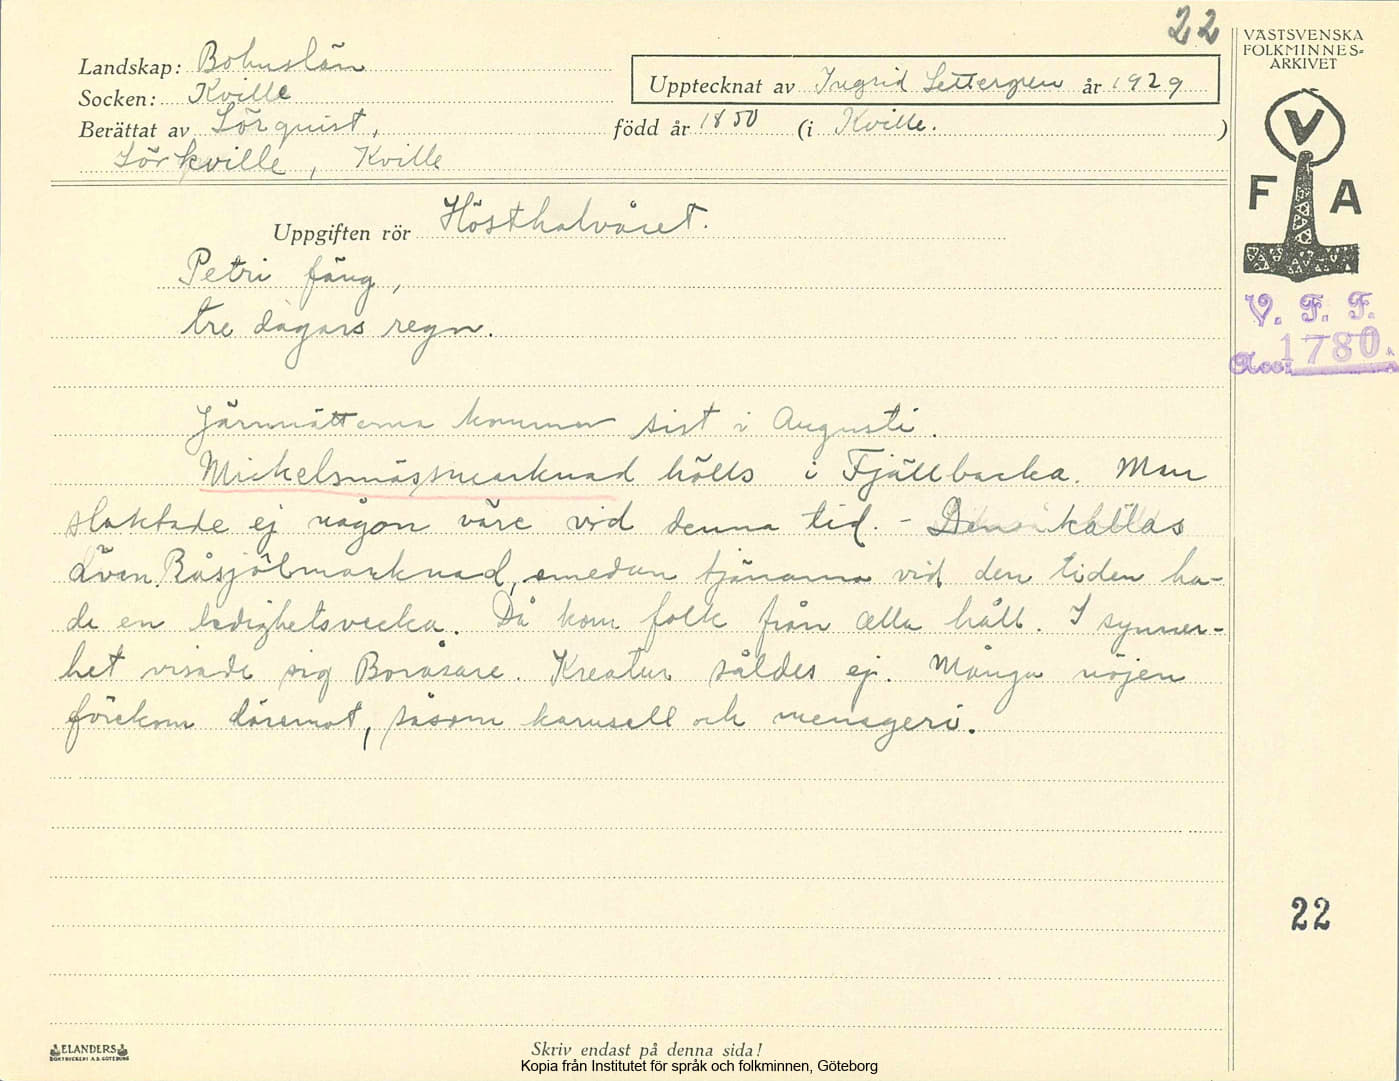 22
VÄSTSVENSKA
FOLKMINNES-
ARKIVET
Landskap: Bohuslän
Upptecknat av Ingrid Settergren år 1929
Socken: Kville
Berättat av Lörquist, född år 1850 (i Kville. )
Lörkville, Kville
V
F A
Uppgiften rör Hösthalvåret.
Petri fäng,
tre dagars regn.
V. F. F.
Acc: 1780.
Järnnätterna kommer sist i Augusti.
Mickelsmässmarknad hölls i Fjällbacka. Man
slaktade ej någon väre vid denna tid. - Den kallas
även Råsjölmarknad, emedan tjänarna vid den tiden ha-
de en ledighetsvecka. Då kom folk från alla håll. I synner-
het visade sig Boråsare. Kreatur såldes ej. Många nöjen
förekom däremot, såsom karusell och menageri.
22
ELANDERS
BOKTRYCKERI A.B. GÖTEBORG
Skriv endast på denna sida!
Kopia från Institutet för språk och folkminnen, Göteborg